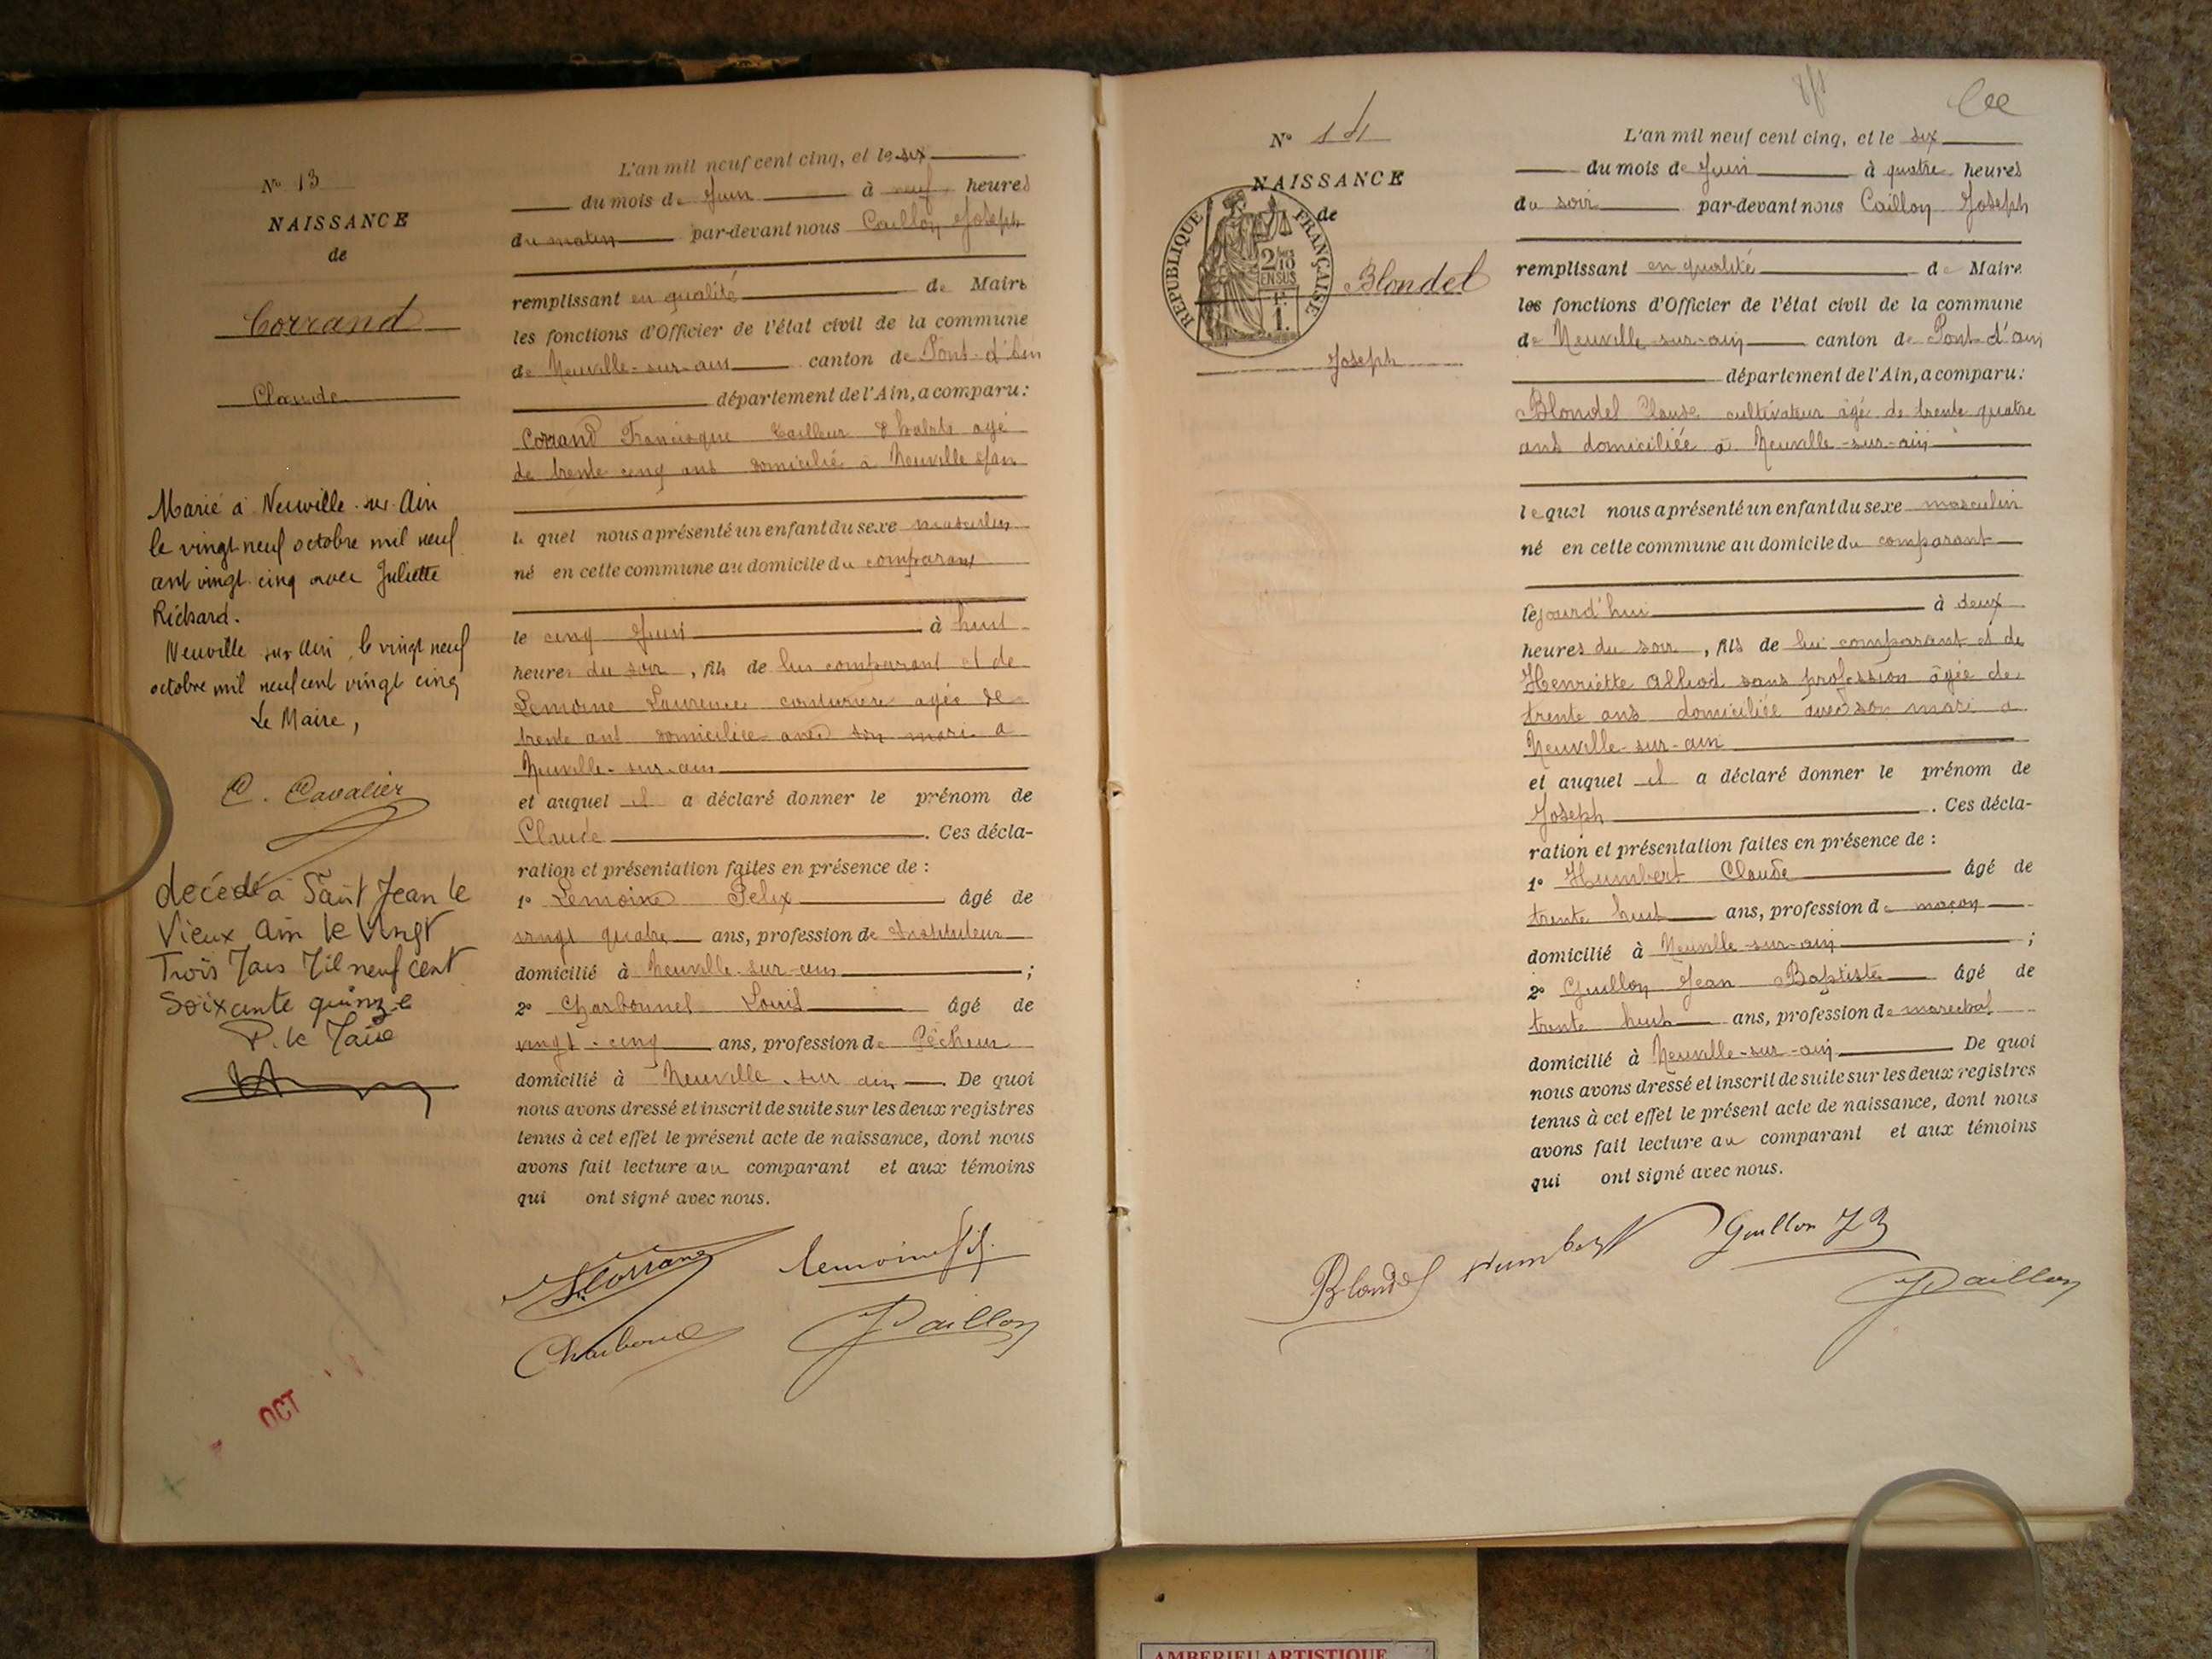 N° 13
NAISSANCE
de
Corrand
Claude
Marié à Neuville-sur-Ain
le vingt neuf octobre mil neuf
cent vingt cinq avec Juliette
Richard.
Neuville sur Ain, le vingt neuf
octobre mil neuf cent vingt cinq
Le Maire,
C. Cavalier
décédé à Saint Jean le
Vieux Ain le Vingt
Trois Mars Mil neuf cent
Soixante quinze
P. le Maire
OCT
L'an mil neuf cent cinq, et le six
du mois de Juin à neuf heures
du matin par-devant nous Caillon Joseph
remplissant en qualité de Maire
les fonctions d'Officier de l'état civil de la commune
de Neuville-sur-ain canton de Pont-d'Ain
département de l'Ain, a comparu:
Corrand Francisque tailleur d'habits agé
de trente cinq ans domicilié à Neuville s/ain
le quel nous a présenté un enfant du sexe masculin
né en cette commune au domicile du comparant
le cinq Juin à huit
heures du soir, fils de lui comparant et de
Lemoine Laurence couturière agée de
trente ans domiciliée avec son mari a
Neuville-sur-ain
et auquel il a déclaré donner le prénom de
Claude. Ces décla-
ration et présentation faites en présence de :
1° Lemoine Félix âgé de
vingt quatre ans, profession de Instituteur
domicilié à Neuville-sur-ain ;
2° Charbonnel Louis âgé de
vingt-cinq ans, profession de Pêcheur
domicilié à Neuville-sur ain. De quoi
nous avons dressé et inscrit de suite sur les deux registres
tenus à cet effet le présent acte de naissance, dont nous
avons fait lecture au comparant et aux témoins
qui ont signé avec nous.
Corrand Lemoine
Charbonnel Caillon
N° 14
NAISSANCE
de
RÉPUBLIQUE FRANÇAISE
2/10
EN SUS
1.
Blondel
Joseph
L'an mil neuf cent cinq, et le six
du mois de Juin à quatre heures
du soir par-devant nous Caillon Joseph
remplissant en qualité de Maire
les fonctions d'Officier de l'état civil de la commune
de Neuville-sur-ain canton de Pont-d'ain
département de l'Ain, a comparu:
Blondel Claude cultivateur âgé de trente quatre
ans domiciliée à Neuville-sur-ain
lequel nous a présenté un enfant du sexe masculin
né en cette commune au domicile du comparant
lejourd'hui à deux
heures du soir, fils de lui comparant et de
Henriette Alliod sans profession âgée de
trente ans domiciliée avec son mari a
Neuville-sur-ain
et auquel il a déclaré donner le prénom de
Joseph. Ces décla-
ration et présentation faites en présence de :
1° Humbert Claude âgé de
trente huit ans, profession de maçon
domicilié à Neuville-sur-ain ;
2° Guillon Jean Baptiste âgé de
trente huit ans, profession de marechal
domicilié à Neuville-sur-ain De quoi
nous avons dressé et inscrit de suite sur les deux registres
tenus à cet effet le présent acte de naissance, dont nous
avons fait lecture au comparant et aux témoins
qui ont signé avec nous.
Blondel Humbert Guillon J B
Caillon
AMBERIEU ARTISTIQUE